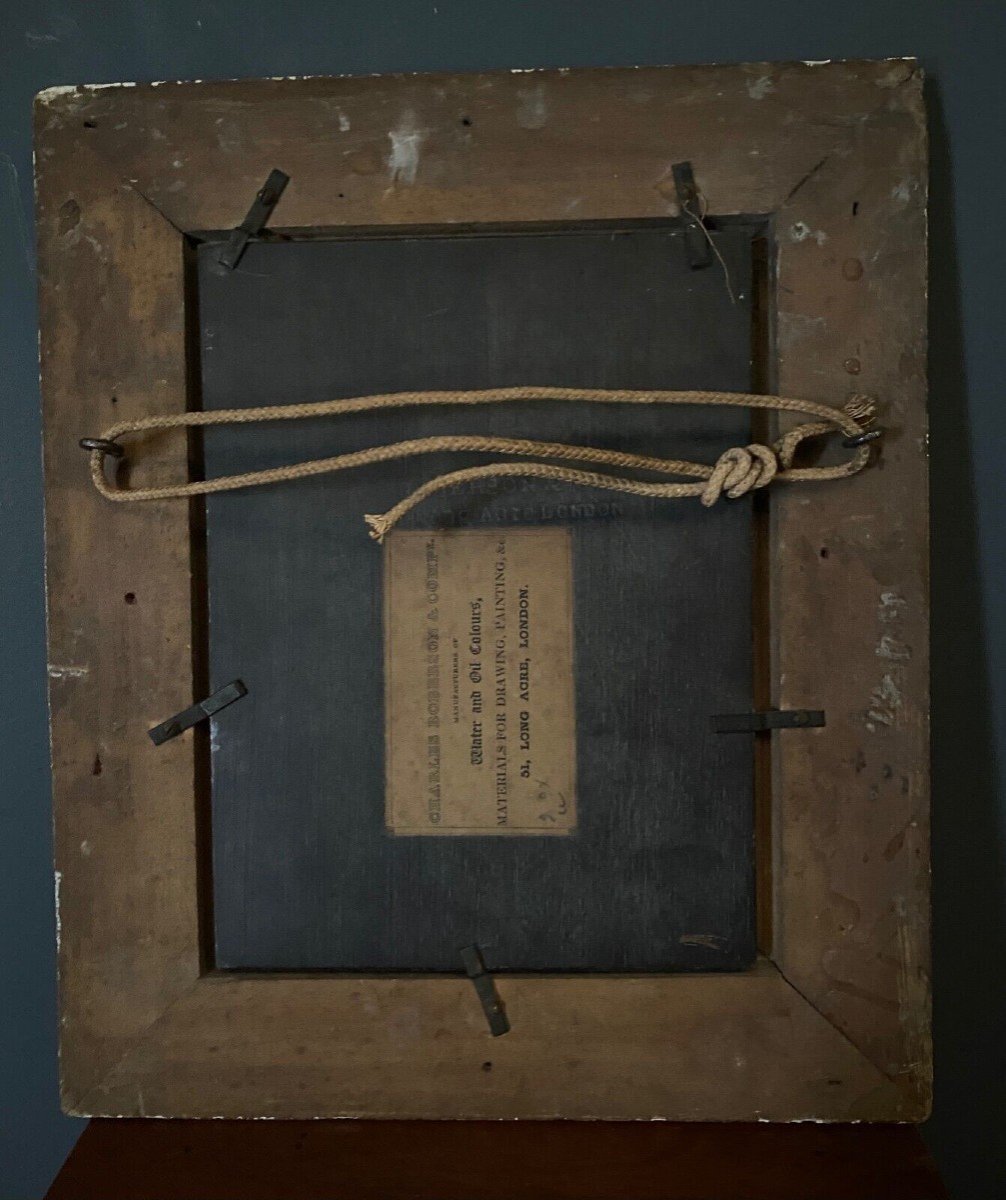 LONDON
CHARLES ROBERSON & COMPY.
MANUFACTURERS OF
Water and Oil Colours,
MATERIALS FOR DRAWING, PAINTING, &c
51, LONG ACRE, LONDON.